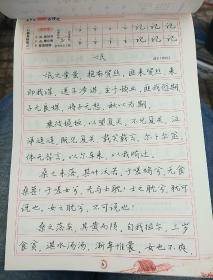 氓
氓之蚩蚩，抱布贸丝，匪来贸丝，来
即我谋。送子涉淇，至于顿丘，匪我愆期
子无良媒，将子无怒，秋以为期。
乘彼垝垣，以望复关，不见复关，泣
涕涟涟，既见复关，载笑载言，尔卜尔筮
体无咎言，以尔车来，以我贿迁。
桑之未落，其叶沃若，于嗟鸠兮，无食
桑葚！于嗟女兮，无与士耽！士之耽兮，犹可
说也，女之耽兮，不可说也！
桑之落矣，其黄而陨，自我徂尔，三岁
食贫，淇水汤汤，渐车帷裳，女也不爽